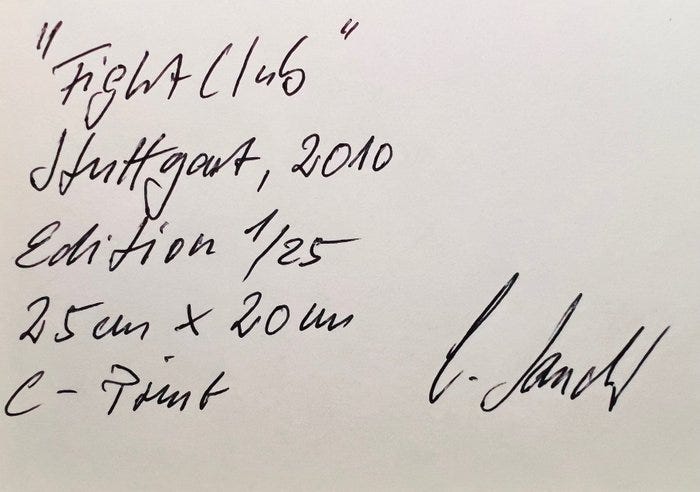 "Fight Club"
Stuttgart, 2010
Edition 1/25
25cm x 20cm
C - Print